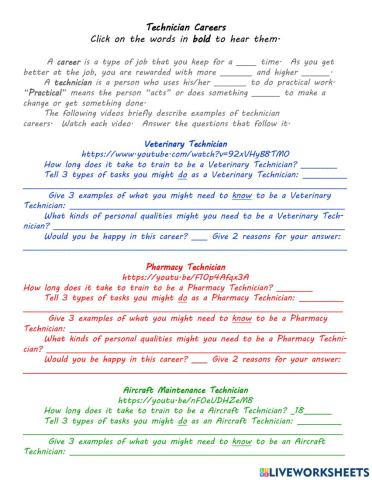 Technician Careers
Click on the words in bold to hear them.
A career is a type of job that you keep for a ____ time. As you get
better at the job, you are rewarded with more ______ and higher _____.
A technician is a person who uses his/her ______ to do practical work.
"Practical" means the person "acts" or does something _____ to make a
change or get something done.
The following videos briefly describe examples of technician
careers. Watch each video. Answer the questions that follow it.
Veterinary Technician
How long does it take to train to be a Veterinary Technician? ______
Tell 3 types of tasks you might do as a Veterinary Technician: ______
Give 3 examples of what you might need to know to be a Veterinary
Technician: ______
What kinds of personal qualities might you need to be a Veterinary Tech-
nician? ______
Would you be happy in this career? ___ Give 2 reasons for your answer:
Pharmacy Technician
How long does it take to train to be a Pharmacy Technician? ______
Tell 3 types of tasks you might do as a Pharmacy Technician: ______
Give 3 examples of what you might need to know to be a Pharmacy
Technician: ______
What kinds of personal qualities might you need to be a Pharmacy Techni-
cian? ______
Would you be happy in this career? ___ Give 2 reasons for your answer:
Aircraft Maintenance Technician
How long does it take to train to be a Aircraft Technician? _18_____
Tell 3 types of tasks you might do as a Aircraft Technician: ______
Give 3 examples of what you might need to know to be an Aircraft
Technician: ______
LIVEWORKSHEETS